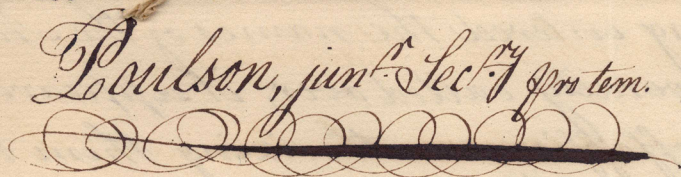 Poulson, junr. Secry. pro tem.